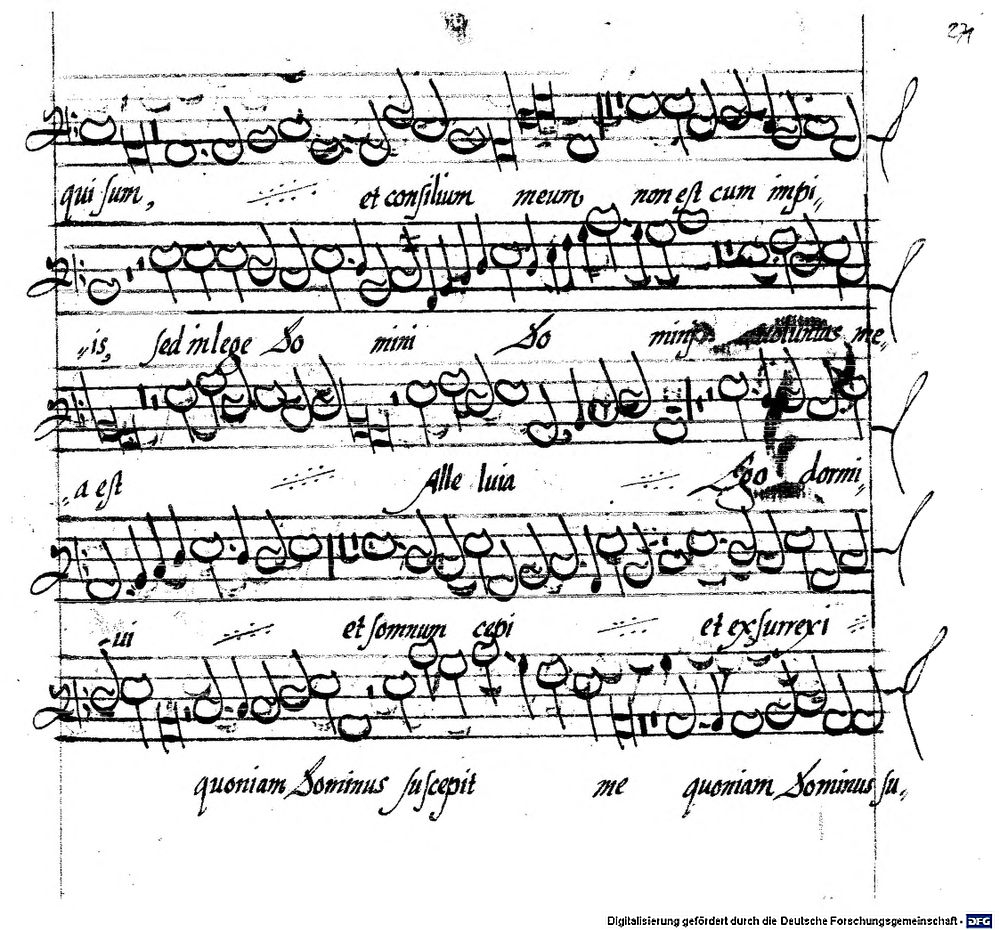 271
qui sum, et consilium meum non est cum impi„
„is, sed in lege Do mini Do mini voluntas me„
„a est Alle luia Ego dormi„
„ui et somnum cepi et exsurrexi
quoniam Dominus suscepit me quoniam Dominus su„
Digitalisierung gefördert durch die Deutsche Forschungsgemeinschaft - DFG